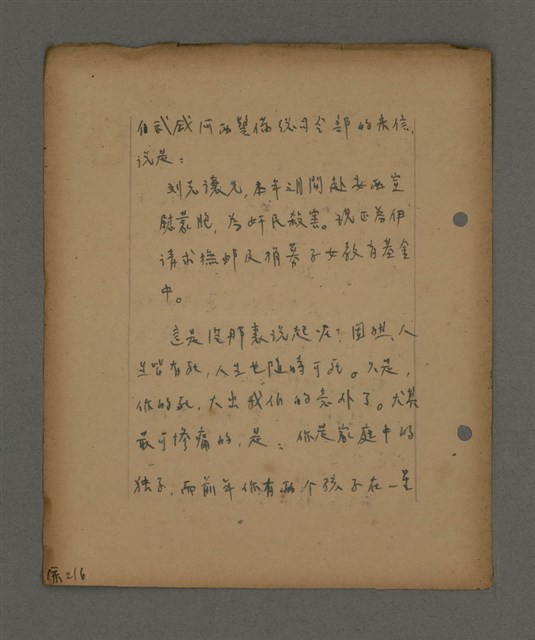 武威河西警备总司令部的来信,
说是:
刘克让兄,本年二月间赴安西宣
慰蒙胞,為奸民殺害。現正為伊
请求撫卹及捐募子女教育基金
中。
這是從那裏说起呢?固然,人
生皆有死,人生也随時可死。只是,
你的死,太出我们的意外了。尤其
最可惨痛的,是:你是家庭中的
独子,而前年你有两个孩子在一星
原216